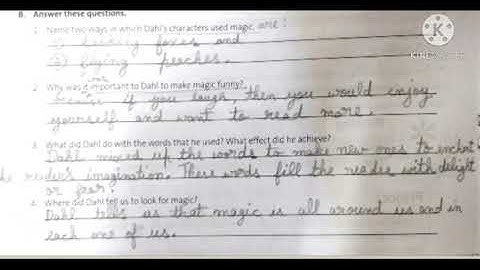 B. Answer these questions.
1. Name two ways in which Dahl's characters used magic. are:
1) talking foxes and
2) flying peaches.
2. Why was it important to Dahl to make magic funny?
because if you laugh, then you would enjoy
yourself and want to read more.
3. What did Dahl do with the words that he used? What effect did he achieve?
Dahl mixed up the words to make new ones to enchant
the reader's imagination. These words fill the reader with delight
or fear?
4. Where did Dahl tell us to look for magic?
Dahl tells us that magic is all around us and in
each one of us.
K